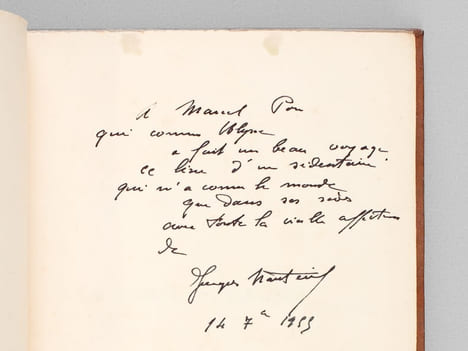 à Marcel Pon
qui comme Ulysse
a fait un beau voyage
ce livre d'un sédentaire
qui n'a connu le monde
que dans ses
avec toute la vieille affection
de
Georges
14 7 1953